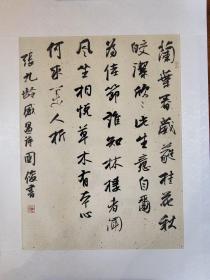 蘭葉春葳蕤桂花秋
皎潔欣々此生意自爾
為佳節誰知林棲者聞
風坐相悅草木有本心
何求美人折
張九齡感遇詩 國俊書